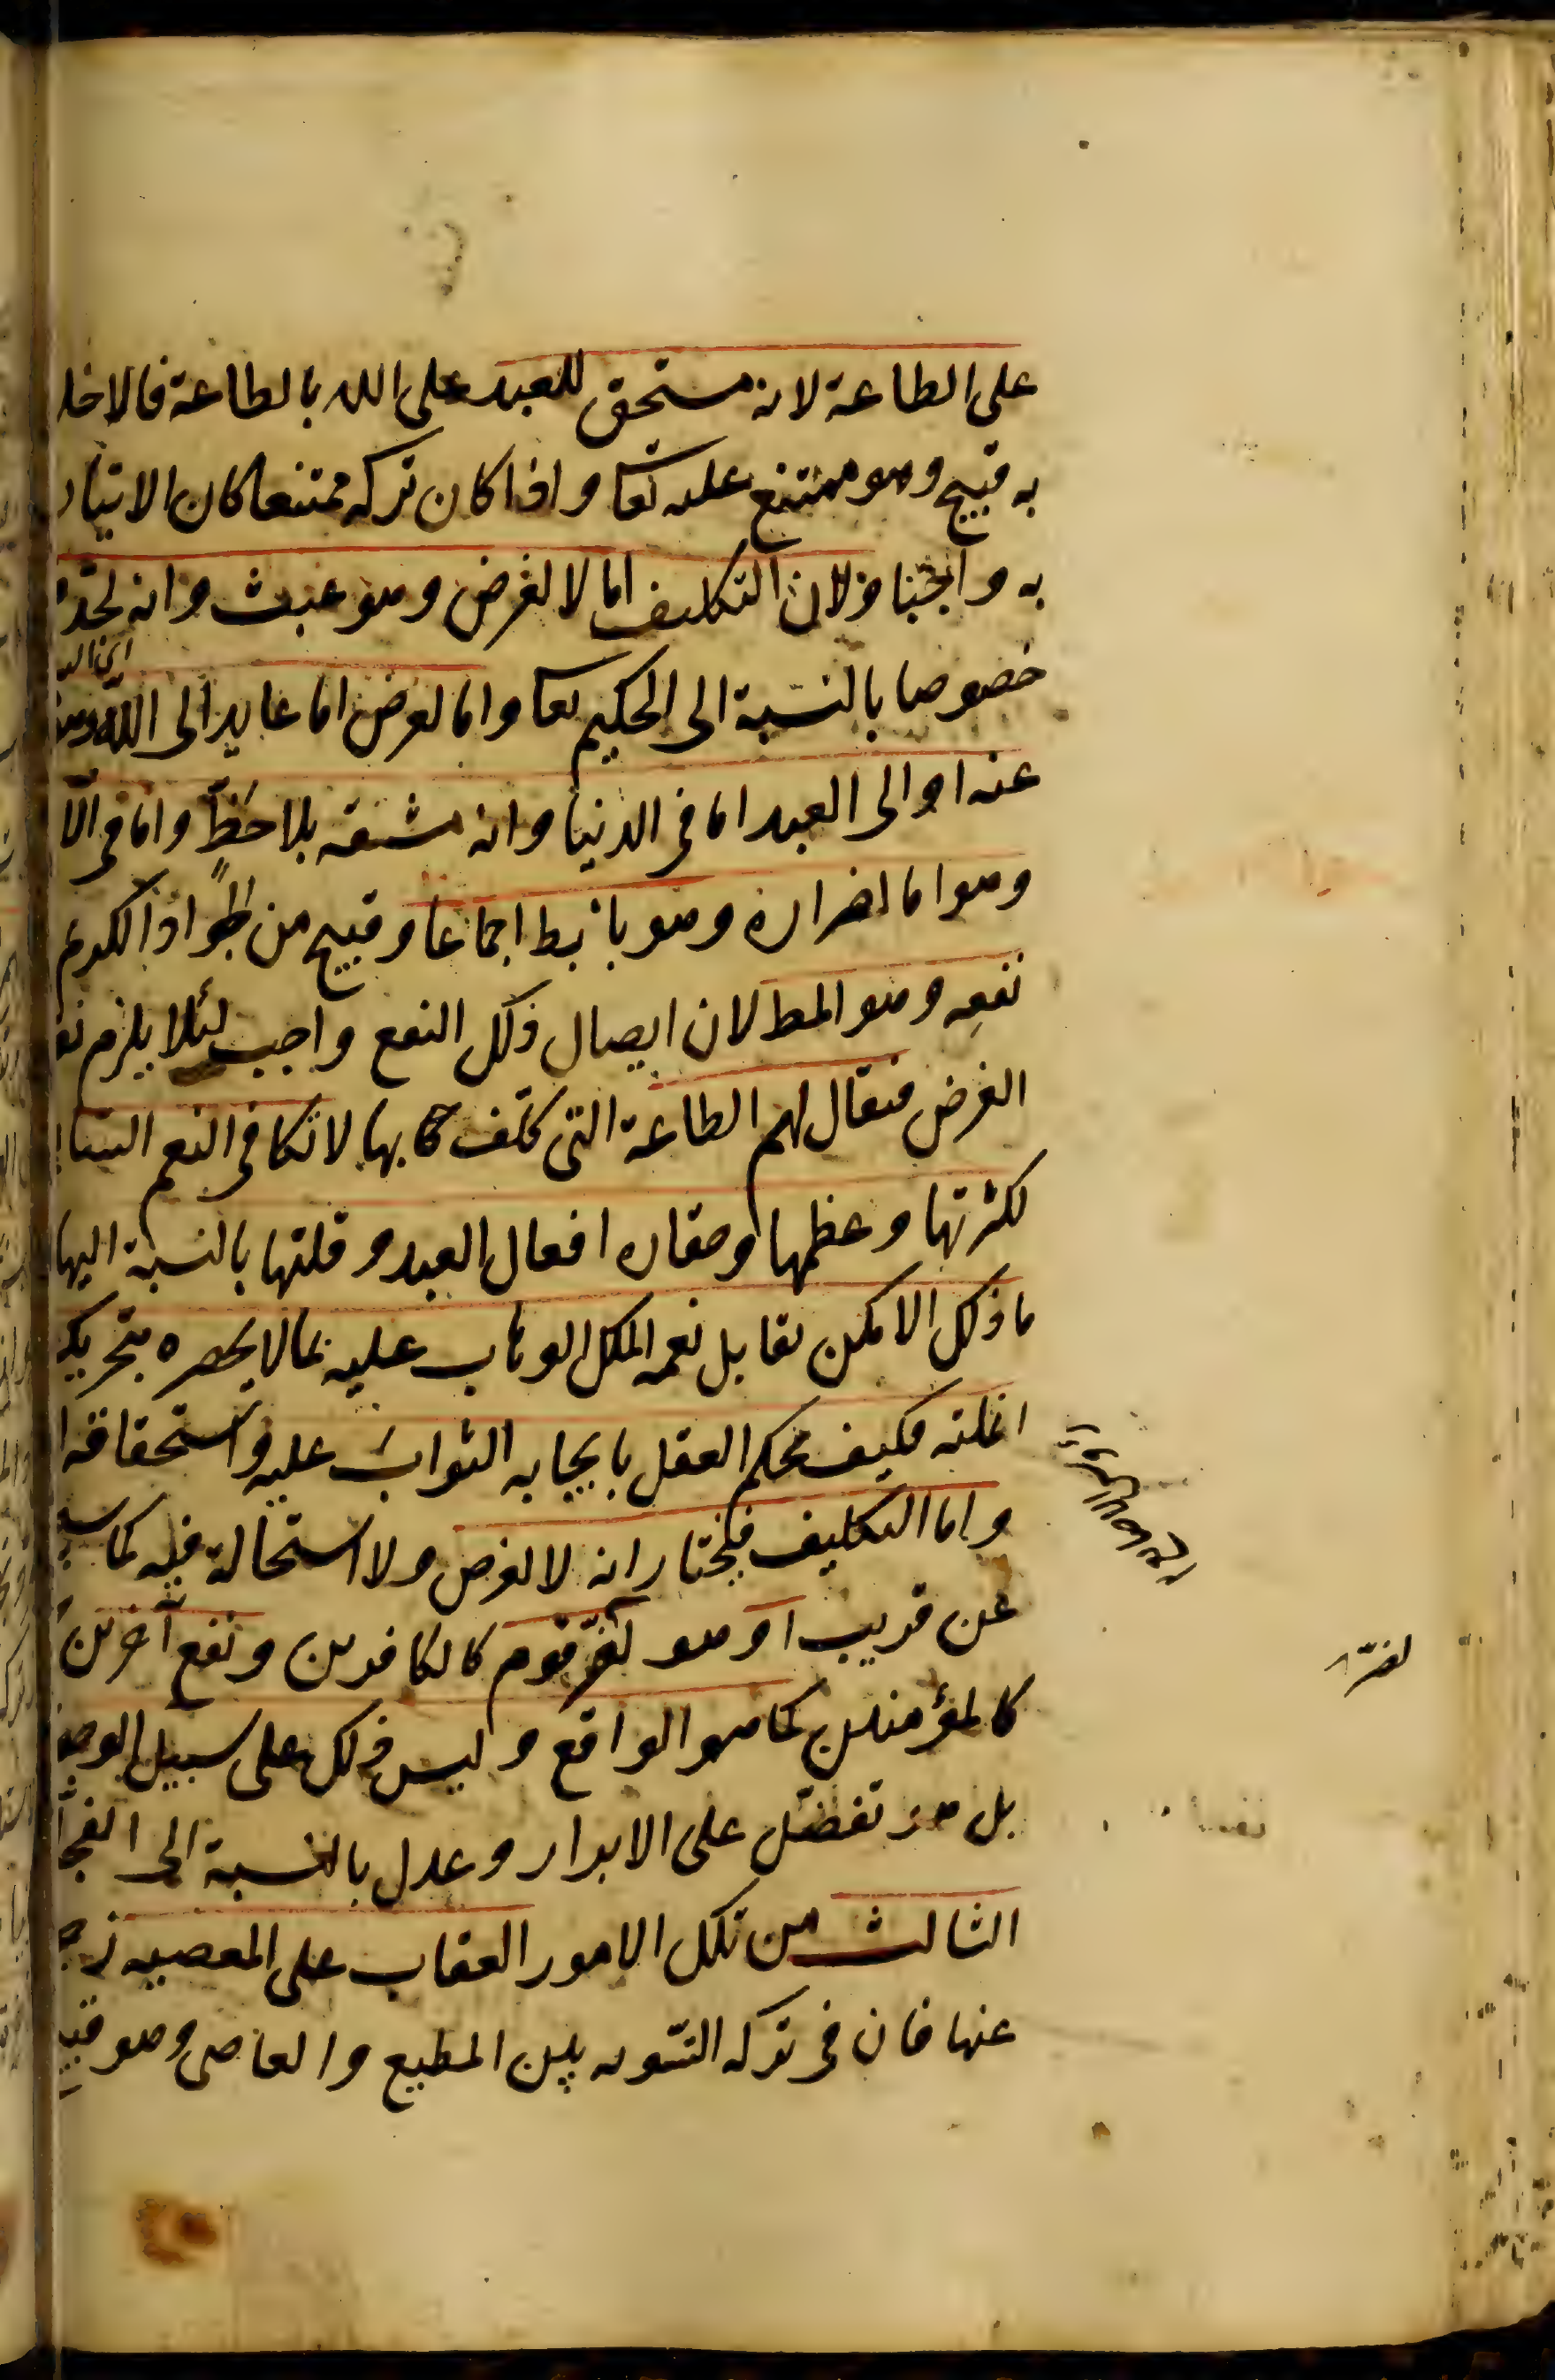 على الطاعة لانه مستحق للعبد على الله بالطاعة فالاخلا
به قبيح وهو ممتنع عليه تعا واذا كان تركه ممتنعا كان الاتيان
به واجبا ولان التكليف اما لا لغرض وهو عبث وانه لقبح
خصوصا بالنسبة الى الحكيم تعا واما لغرض اما عايد الى الله وهو منزه
عنه او الى العبد اما في الدنيا وانه مشقه بلا حظ واما في الآ
وهو اما اضراره وهو باطل اجماعا وقبيح من الجواد الكريم
نفعه وهو المط لان ايصال ذلك النفع واجب لئلا يلزم نقض
الغرض فيقال لهم الطاعة التي كلف بها لا تكافي النعم السا
لكثرتها وعظمها وحقاره افعال العبد وقلتها بالنسبة اليها
ما ذلك الا كمن يقابل نعمه الملك الوهاب عليه بما لا يحصره بتحريك
انملته فكيف يحكم العقل بايجابه الثواب عليه واستحقاقه ا
واما التكليف فيختار انه لا لغرض ولا استحالة فيه كما سيـ
عن قريب او هو لضر قوم كالكافرين ونفع آخرين
كالمؤمنين كما هو الواقع وليس ذلك على سبيل الوجوب
بل هو تفضل على الابرار وعدل بالنسبة الى الفجا
الثالث من تلك الامور العقاب على المعصيه زجرا
عنها فان في تركه التسويه بين المطيع والعاصي وهو قبيح
لضر